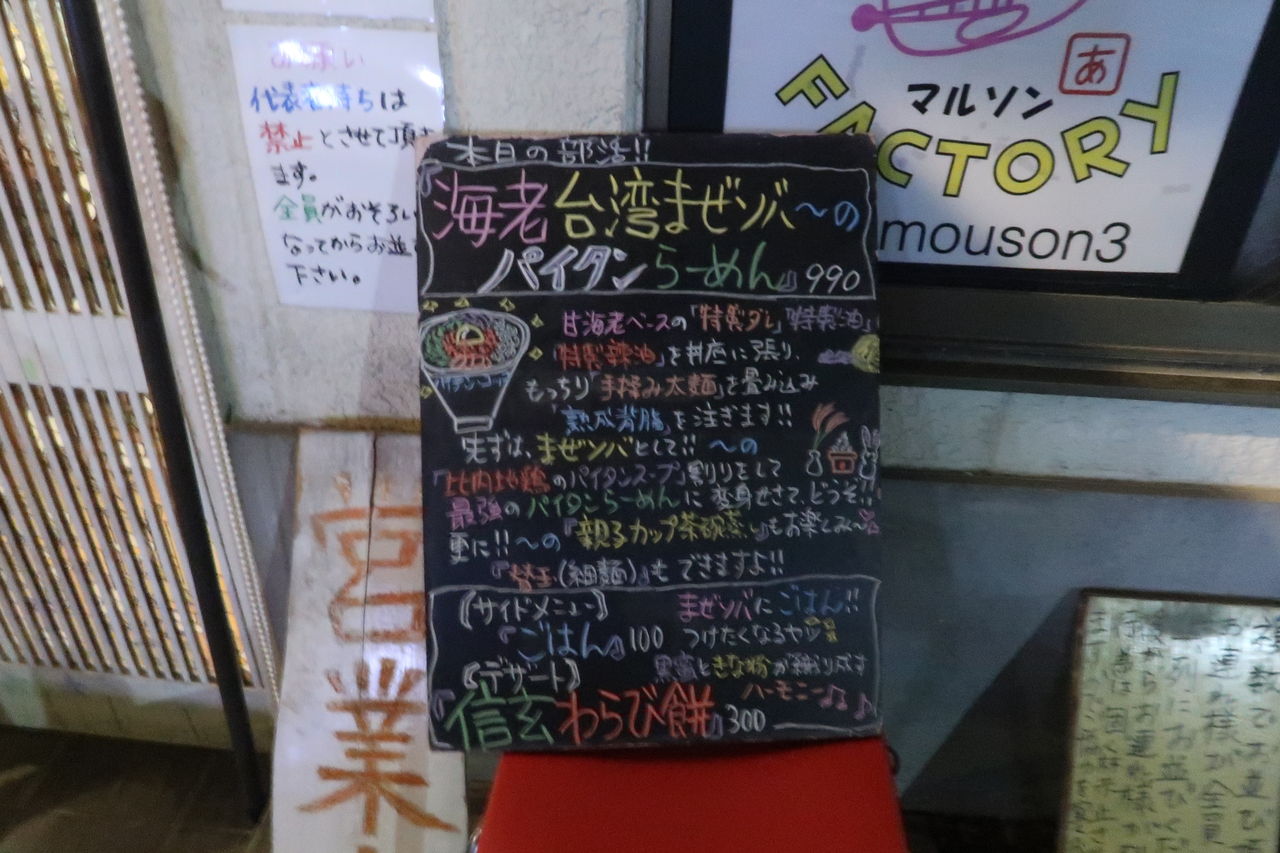 お願い
代表者待ちは
禁止とさせて頂き
ます。
全員がおそろい
なってからお並
下さい。
マルソン
あ
FACTORY
mouson3
本日の部活!!
『海老台湾まぜソバ〜の
パイタンらーめん』990
甘海老ベースの「特製ダレ」「特製油」
「特製辣油」を丼底に張り、
もっちり「手揉み太麺」を畳み込み
「熟成背脂」を注ぎます!!
先ずは、まぜソバとして!! 〜の
「比内地鶏のパイタンスープ」割りをして
最強のパイタンらーめんに変身させて、どうぞ!!
更に!!〜の『親子カップ茶碗蒸し』もお楽しみ〜
『替玉(細麺)』もできますよ!!
〘サイドメニュー〙 まぜソバにごはん!!
『ごはん』100 つけたくなるヤツ
〘デザート〙 黒蜜ときな粉が織り成す
『信玄わらび餅』300 ハーモニー♫♪
営業